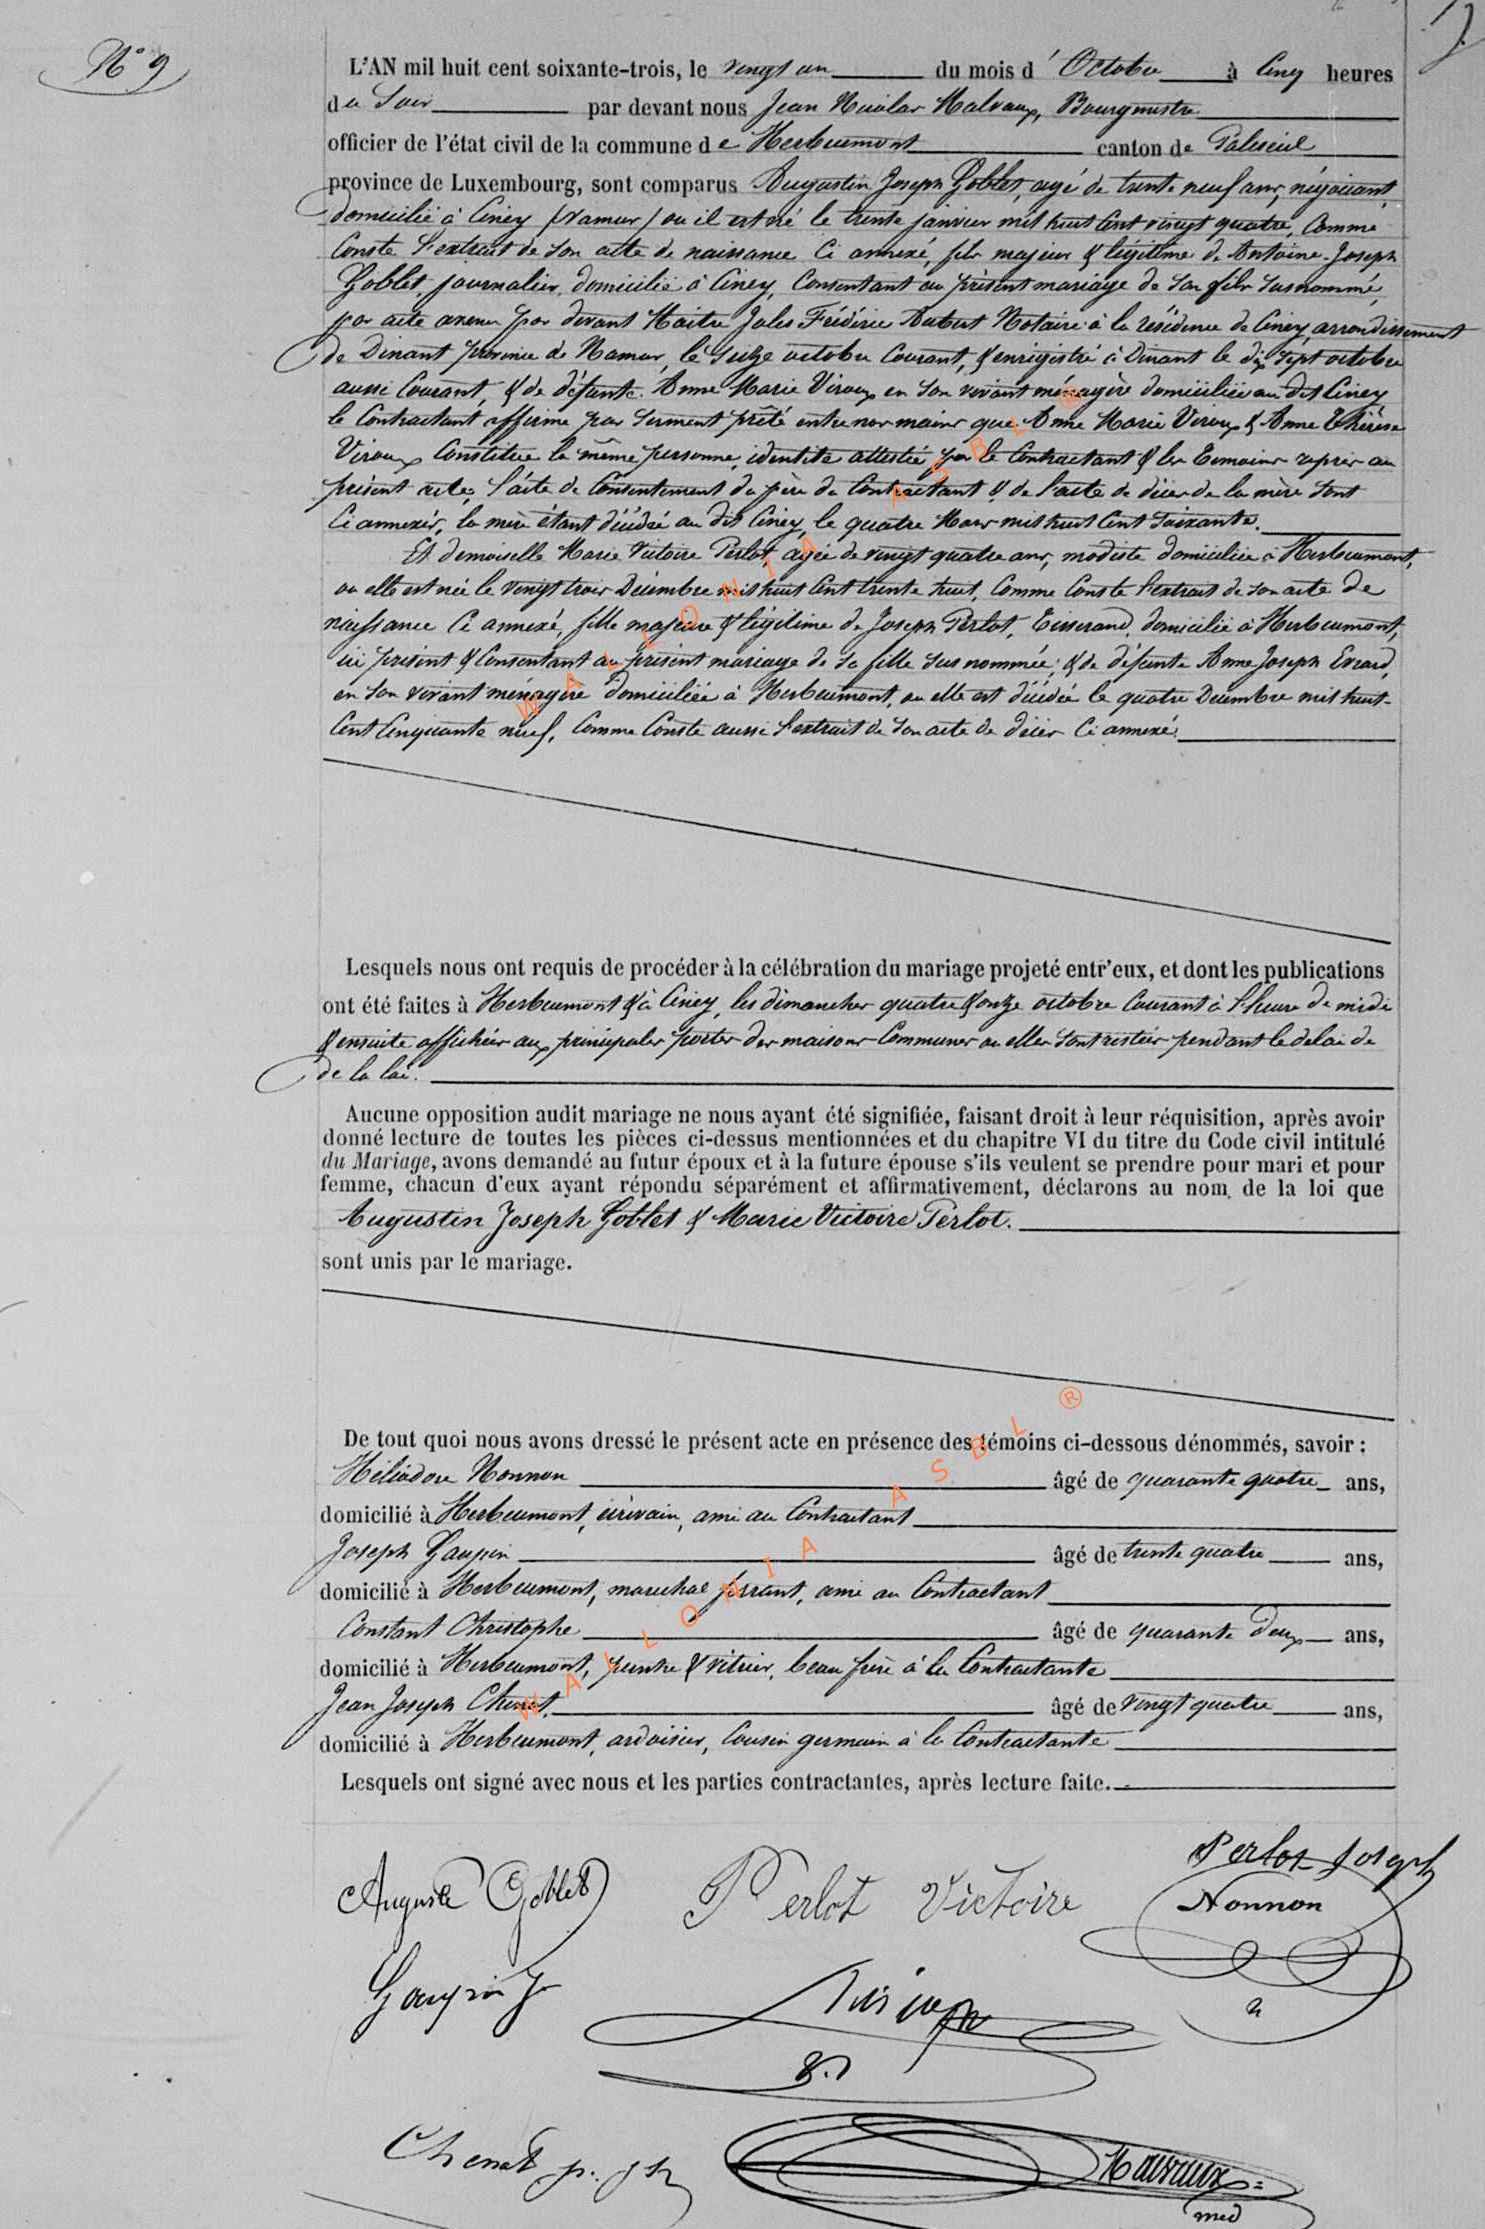 N° 9
L'AN mil huit cent soixante-trois, le vingt un du mois d'Octobre à Cinq heures
du Soir par devant nous Jean Nicolas Malvaux, Bourgmestre
officier de l'état civil de la commune de Herbeumont canton de Paliseul
province de Luxembourg, sont comparus Augustin Joseph Goblet, agé de trente neuf ans, négociant,
domicilié à Ciney (Namur) ou il est né le trente janvier mil huit Cent vingt quatre, Comme
Conste l'extrait de son acte de naissance Ci annexé, fils majeur & légitime de Antoine-Joseph
Goblet, journalier, domicilié à Ciney, Consentant au présent mariage de son fils susnommé,
par acte avenu par devant Maitre Jules Frédéric Notaire à la résidence de Ciney, arrondissement
de Dinant province de Namur, le seize octobre Courant, & enregistré à Dinant le dix sept octobre
aussi Courant, & de défunte Anne Marie Viroux en son vivant ménagère domiciliée au dit Ciney
le Contractant affirme par serment prêté entre nos mains que Anne Marie Viroux & Anne Thérèse
Viroux Constitue la même personne, identité attestée par le Contractant & les Temoins repris au
présent acte, l'acte de Consentement du père du Contractant & de l'acte de décès de la mère sont
Ci annexés, la mère étant décédée au dit Ciney, le quatre Mars mil huit Cent Soixante.
Et demoiselle Marie Victoire Perlot agée de vingt quatre ans, modiste domiciliée à Herbeumont,
ou elle est née le vingt trois Décembre mil huit Cent trente huit, Comme Conste l'extrait de son acte de
naissance Ci annexé, fille majeure & légitime de Joseph Perlot, Tisserand, domicilié à Herbeumont,
ici présent & Consentant au présent mariage de sa fille sus nommée; & de défunte Anne Joseph Evrard,
en son vivant ménagère domiciliée à Herbeumont, ou elle est décédée le quatre Décembre mil huit-
Cent Cinquante neuf, Comme Conste aussi l'extrait de son acte de décès Ci annexé.
Lesquels nous ont requis de procéder à la célébration du mariage projeté entr'eux, et dont les publications
ont été faites à Herbeumont & à Ciney, les dimanches quatre & onze octobre Courant à l'heure de midi
& ensuite affichées aux principales portes des maisons Communes ou elles sont restées pendant le delai de
de la loi.
Aucune opposition audit mariage ne nous ayant été signifiée, faisant droit à leur réquisition, après avoir
donné lecture de toutes les pièces ci-dessus mentionnées et du chapitre VI du titre du Code civil intitulé
du Mariage, avons demandé au futur époux et à la future épouse s'ils veulent se prendre pour mari et pour
femme, chacun d'eux ayant répondu séparément et affirmativement, déclarons au nom de la loi que
Augustin Joseph Goblet & Marie Victoire Perlot.
sont unis par le mariage.
De tout quoi nous avons dressé le présent acte en présence des témoins ci-dessous dénommés, savoir :
Héliodore Nonnon âgé de quarante quatre ans,
domicilié à Herbeumont, écrivain, ami au Contractant
Joseph Gaupin âgé de trente quatre ans,
domicilié à Herbeumont, marechal ferrant, ami au Contractant
Constant Christophe âgé de quarante deux ans,
domicilié à Herbeumont, peintre & vitrier, beau frère à la Contractante
Jean Joseph Chenot, âgé de vingt quatre ans,
domicilié à Herbeumont, ardoisier, Cousin germain à la Contractante
Lesquels ont signé avec nous et les parties contractantes, après lecture faite.
Perlot Joseph
Auguste Goblet Perlot Victoire Nonnon
Gaupin J
Chenot j. jh Malvaux
WALLONIA ASBL ®
WALLONIA ASBL ®